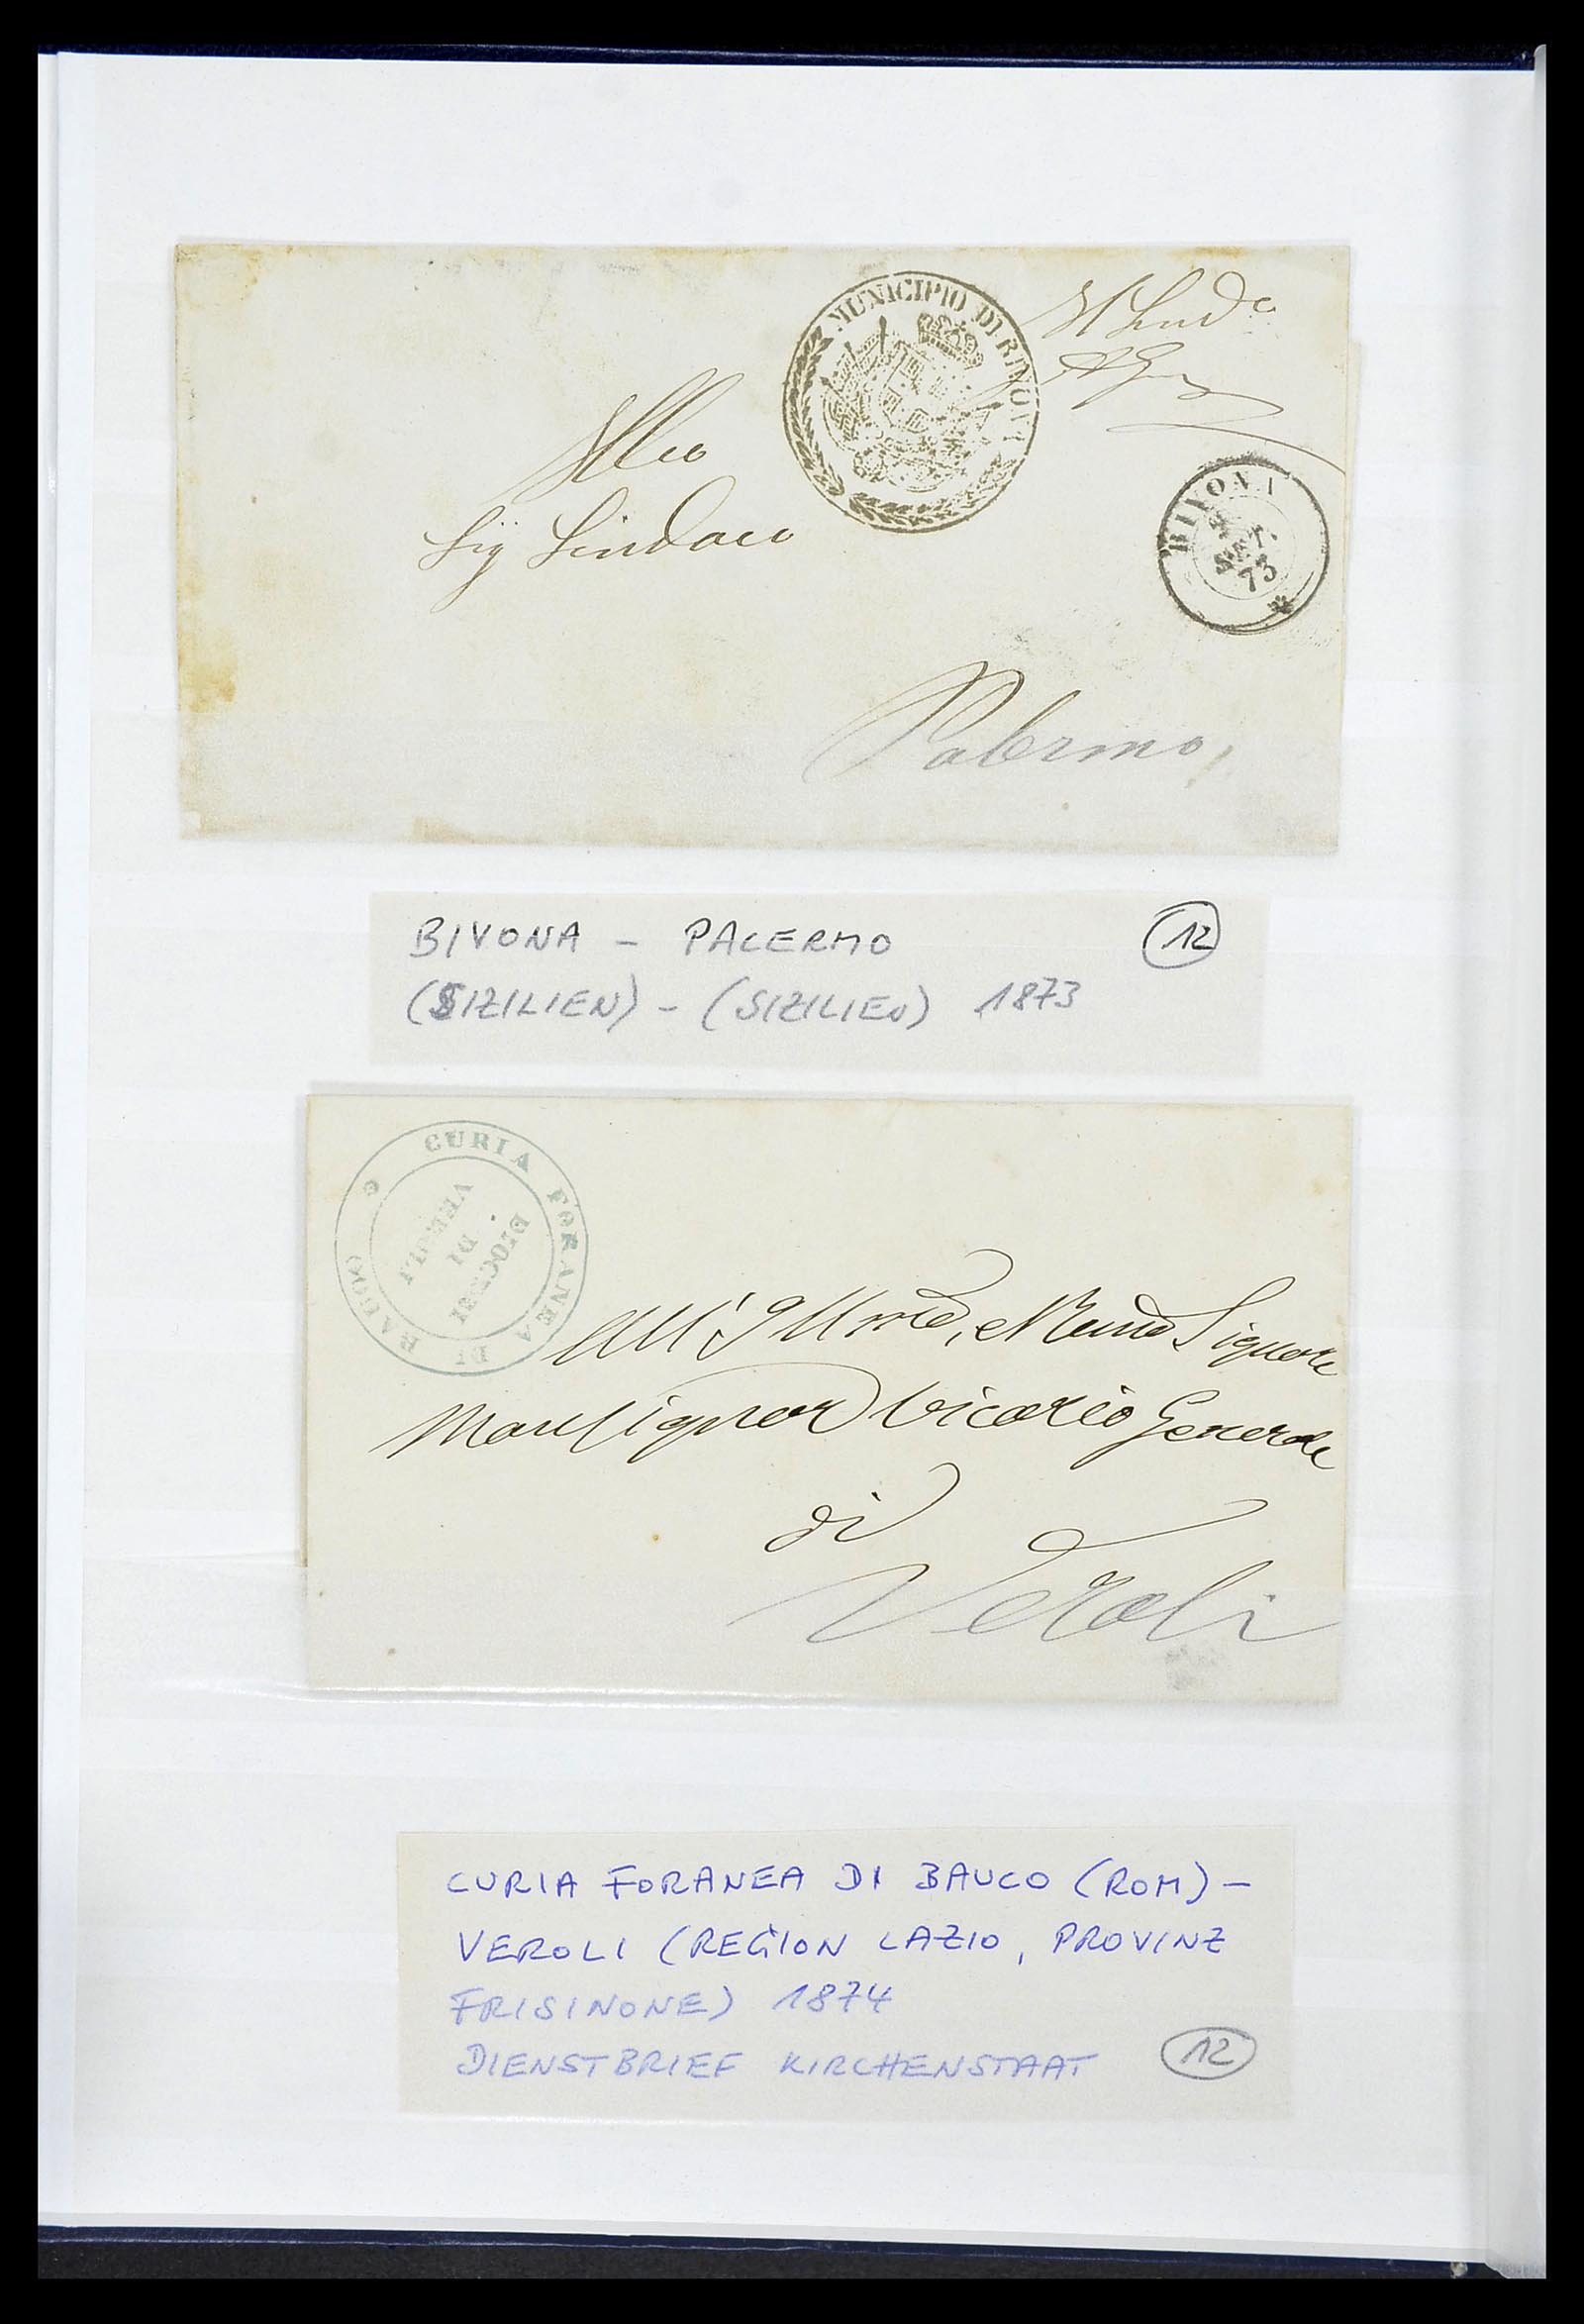 MUNICIPIO DI BIVONA
Il Sind.o
Allo
Sig Sindaco
BIVONA
SET.
73
Palermo
BIVONA - PALERMO
12
(SIZILIEN) - (SIZILIEN) 1873
CURIA FORANEA DI BAUCO
DIOCESI
DI
VEROLI
All' Illmo, e Rmo Signore
Monsignor Vicario Generale
di
Veroli
CURIA FORANEA DI BAUCO (ROM) -
VEROLI (REGION LAZIO, PROVINZ
FRISINONE) 1874
DIENSTBRIEF KIRCHENSTAAT
12